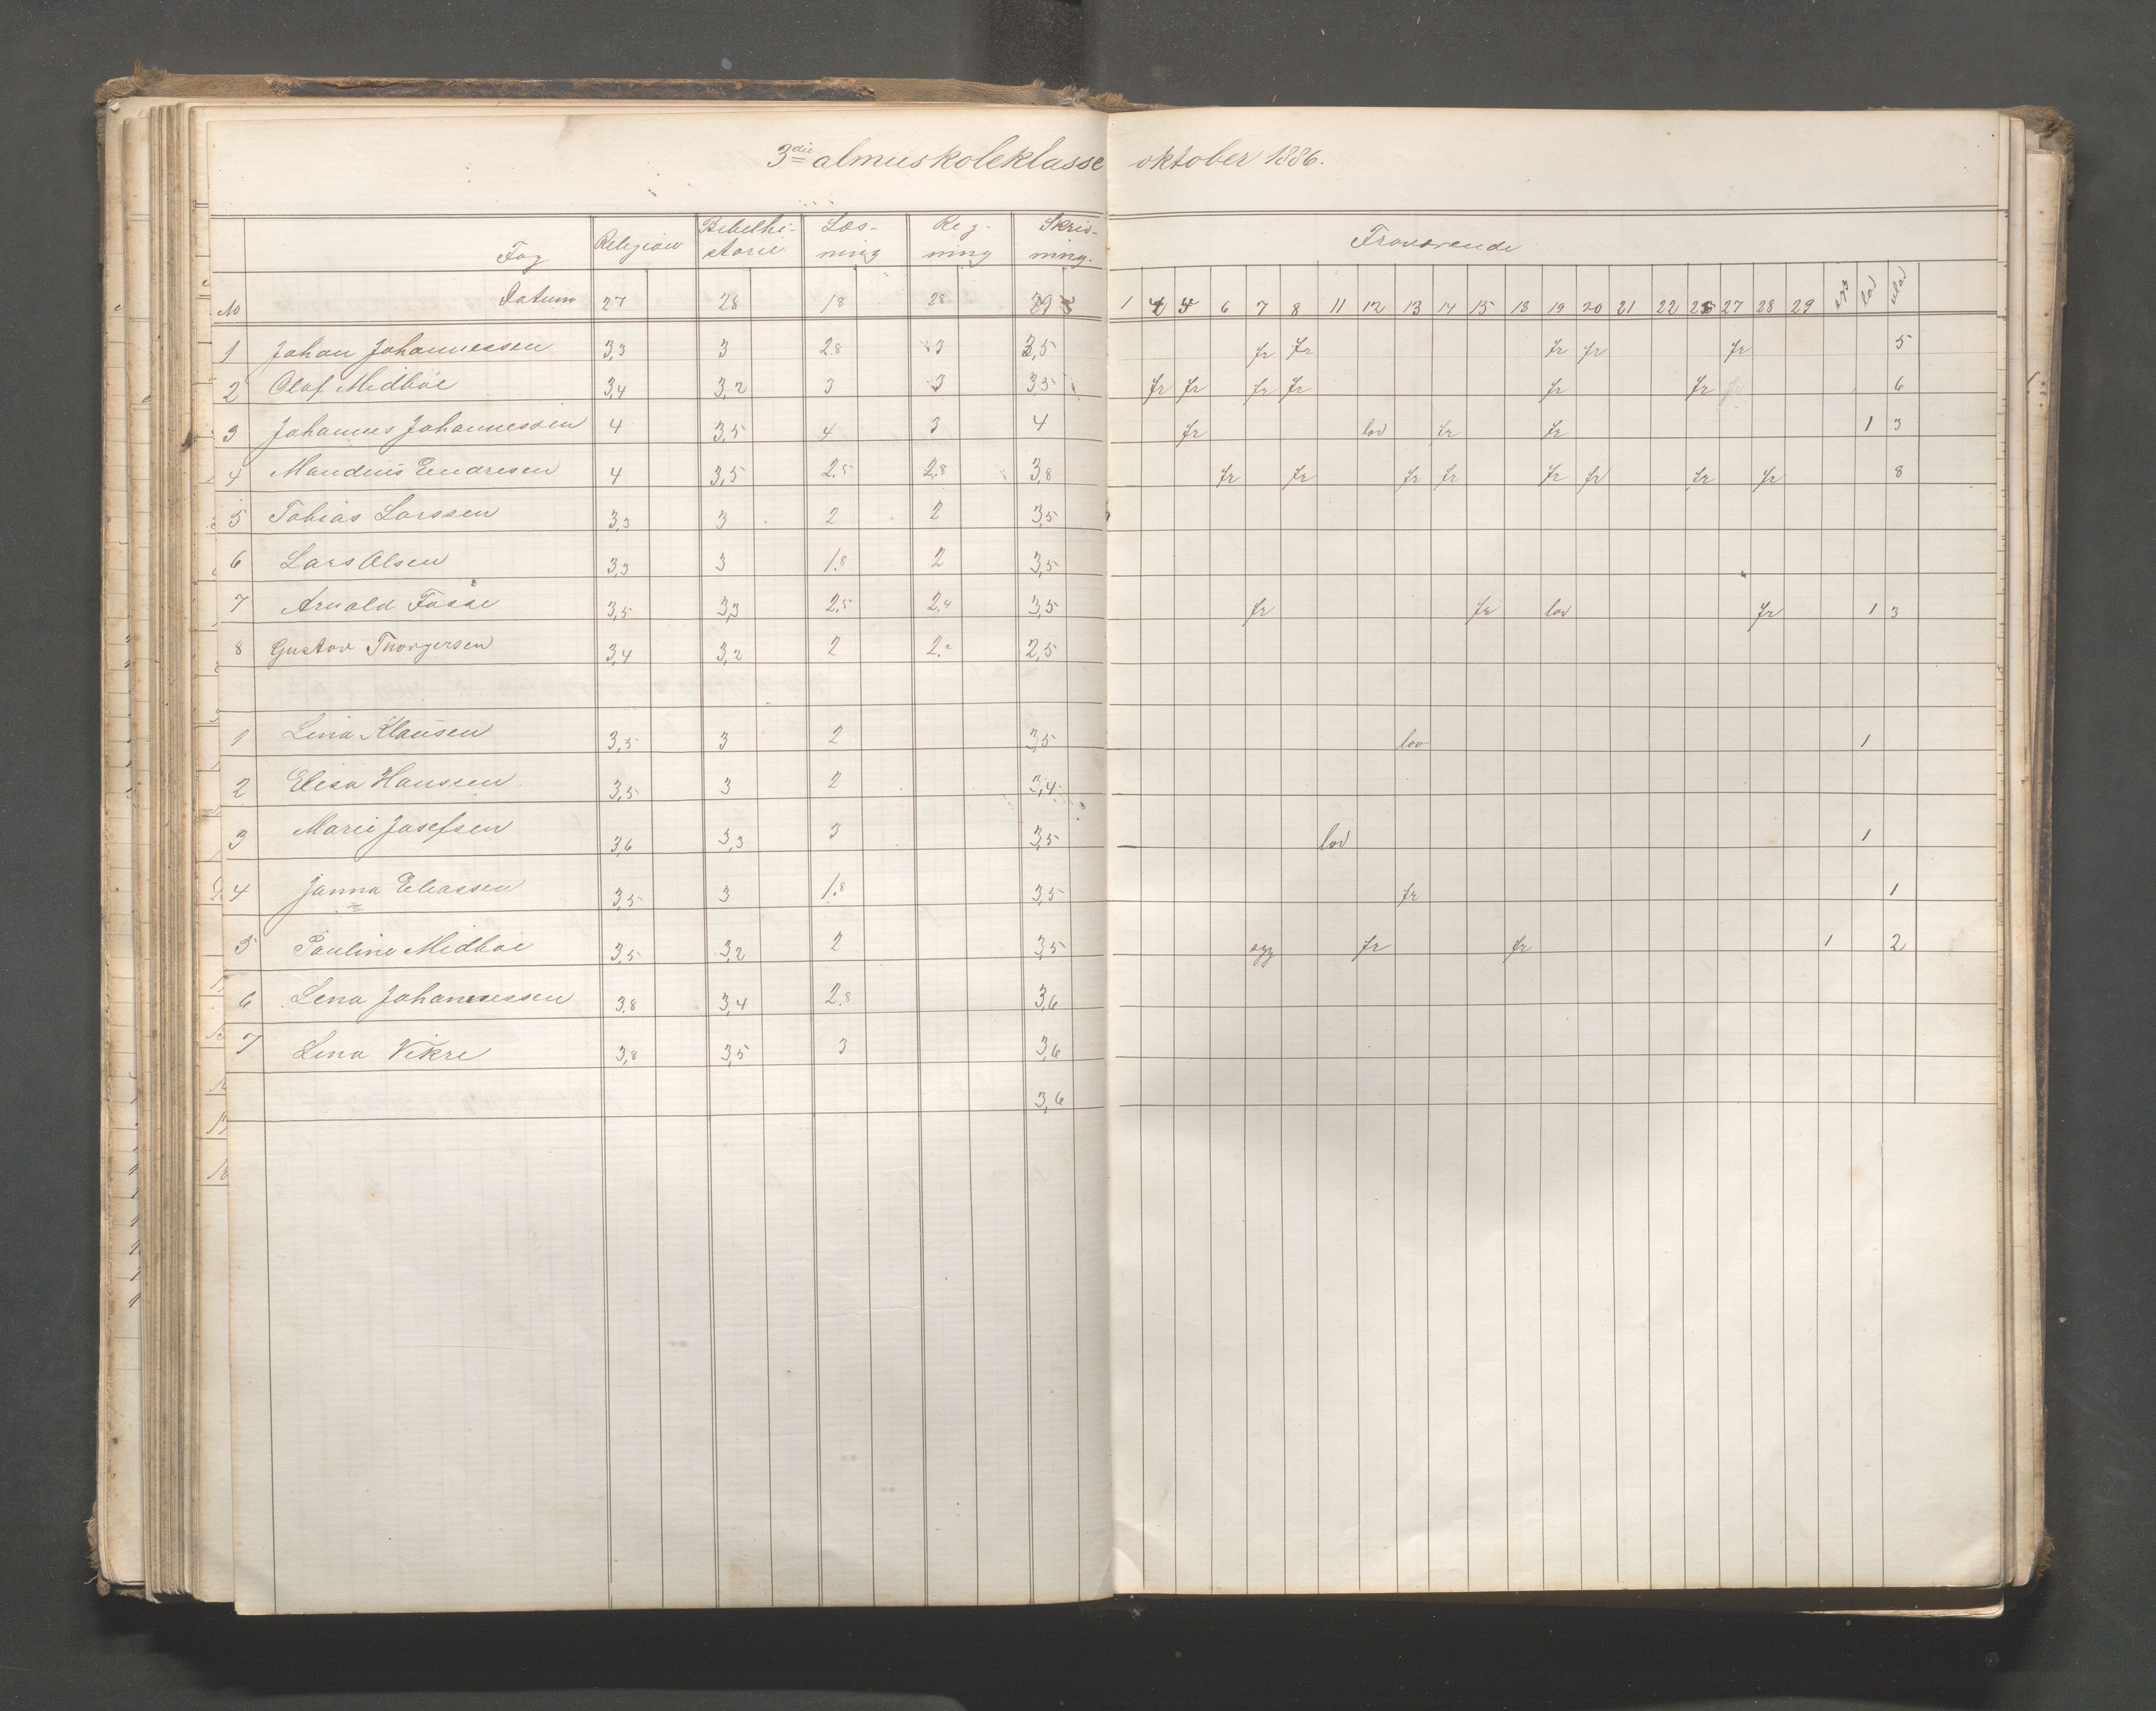 3die almueskoleklasse oktober 1886.
Fag Religion Bibelhi- storie Læs- ning Reg- ning Skriv- ning. Fraværende
No Datum 27 28 18 28 29 1 4 5 6 7 8 11 12 13 14 15 18 19 20 21 22 25 27 28 29 syg lov ulov
1 Johan Johannessen 3,3 3 2.8 3 3,5 fr fr fr fr fr 5
2 Olaf Midbøe 3,4 3,2 3 3 3,5 fr fr fr fr fr fr 6
3 Johannes Johannessen 4 3,5 4 3 4 fr lov fr fr 1 3
4 Maudius Endresen 4 3,5 2.5 2.8 3,8 fr fr fr fr fr fr fr fr 8
5 Tobias Larssen 3,3 3 2 2 3,5
6 Lars Olsen 3,3 3 1.8 2 3,5
7 Arnold Fosse 3,5 3,3 2.5 2.4 3,5 fr fr lov fr 1 3
8 Gustav Thorgersen 3,4 3,2 2 2.2 2,5
1 Lina Klausen 3,5 3 2 3,5 lov 1
2 Elisa Hanssen 3,5 3 2 3,4
3 Marie Josefsen 3,6 3,3 3 3,5 lov 1
4 Janna Eliassen 3,5 3 1.8 3,5 fr 1
5 Pauline Midbøe 3,5 3,2 2 3,5 syg fr fr 1 2
6 Lena Johannessen 3.8 3,4 2.8 3,6
7 Lena Vikre 3,8 3,5 3 3,6
3,6